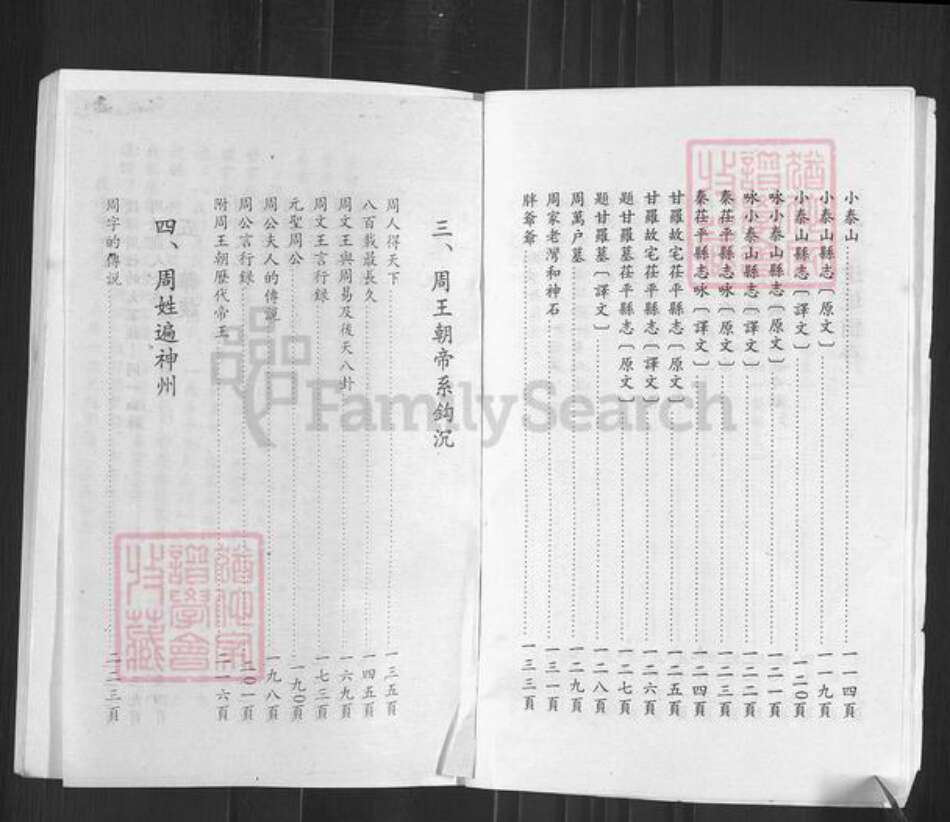 小泰山……一一四頁
小泰山縣志〔原文〕……一一九頁
小泰山縣志〔譯文〕……一二〇頁
咏小泰山縣志〔原文〕……一二一頁
咏小泰山縣志〔譯文〕……一二二頁
秦茌平縣志咏〔原文〕……一二三頁
秦茌平縣志咏〔譯文〕……一二四頁
甘羅故宅茌平縣志〔原文〕……一二五頁
甘羅故宅茌平縣志〔譯文〕……一二六頁
題甘羅墓茌平縣志〔原文〕……一二七頁
題甘羅墓〔譯文〕……一二八頁
周萬户墓……一二九頁
周家老灣和神石……一三一頁
胖爺爺……一三三頁
三、周王朝帝系鈎沉
周人得天下……一三五頁
八百載最長久……一四五頁
周文王與周易及後天八卦……一六九頁
周文王言行録……一七三頁
元聖周公……一九〇頁
周公夫人的傳説……一九八頁
周公言行録……二〇一頁
附周王朝歷代帝王……二一六頁
四、周姓遍神州
周字的傳説……二二三頁
譜學會
收藏
FamilySearch